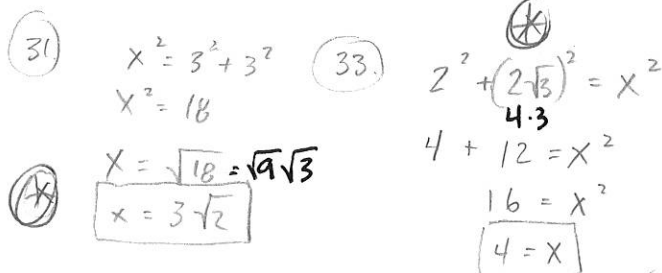 31.
x² = 3² + 3²
x² = 18
x = √18 = √9√3
x = 3√2
33.
2² + (2√3)² = x²
4·3
4 + 12 = x²
16 = x²
4 = x